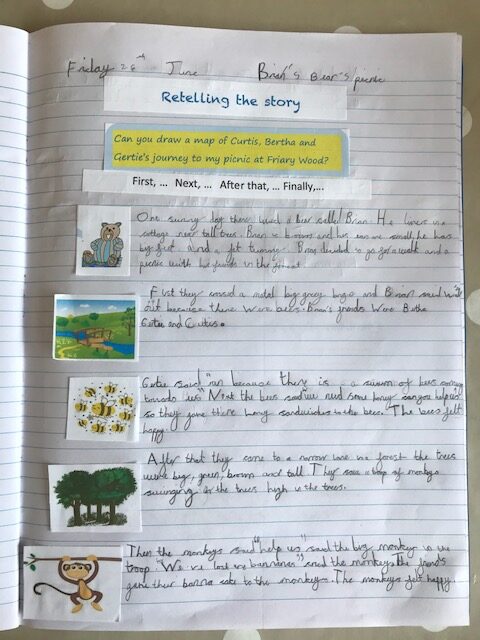 Friday 28th June Brian"s Bear's picnic
Retelling the story
Can you draw a map of Curtis, Bertha and
Gertie's journey to my picnic at Friary Wood?
First, ... Next, ... After that, ... Finally,...
One sunny day there lived a Bear called Brian He in a
cottage near tall trees. Brian is brown and his ears are small he has
big feet and a fat tummy. Brian decided to go for a walk and a
picnic with his friends in the forest
First they crossed a metal big green and Brian said
out because there were bees. Brian's friends were
and
Gertie said "run because there is a swarm of bees coming
towards us" Next the bees said "we need some honey can you help us"
so they gave there honey sandwiches to the bees. The bees felt
happy.
After that they came to a narrow lane in a forest the trees
were big, green, brown and tall They saw a troop of monkeys
swinging in the trees high in the trees.
Then the monkeys said "help us" said the big monkey in the
troop "We've lost our bananas" said the monkeys The friends
gave their cake to the monkeys. The monkeys felt happy.